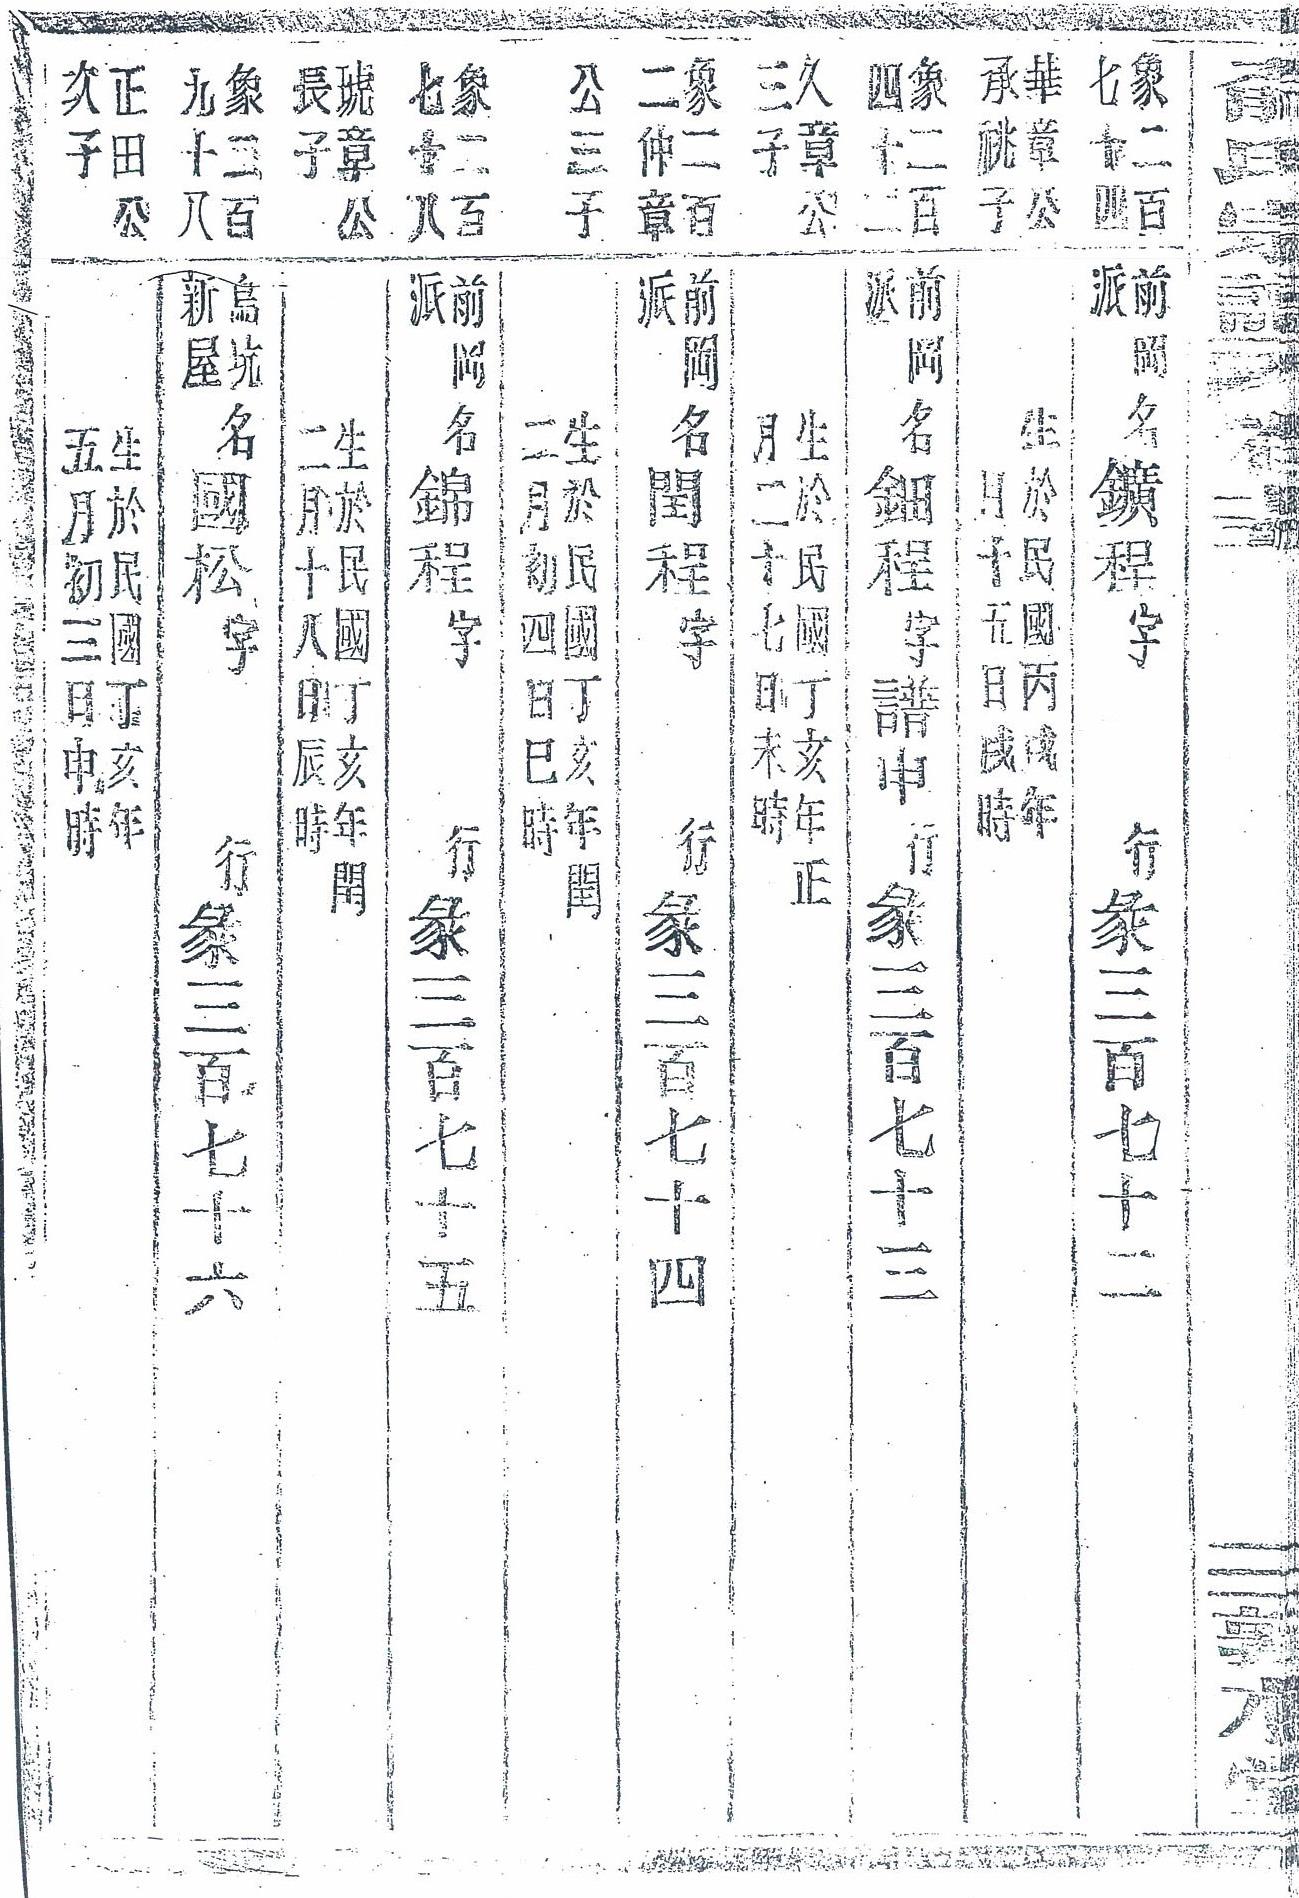 象二百
七十四
前岡
派
名鑛程字 行彖三百七十二
華章公
承祧子
生於民國丙戌年
月十五日戌時
象二百
四十二
前岡
派
名鈿程字譜申行彖三百七十三
久章公
三子
生於民國丁亥年正
月二十七日未時
象二百
二仲章
前岡
派
名閏程字 行彖三百七十四
公三子
生於民國丁亥年閏
二月初四日巳時
象二百
七十八
前岡
派
名錦程字 行彖三百七十五
琥章公
長子
生於民國丁亥年閏
二月十八日辰時
象三百
九十八
烏坑
新屋
名國松字 行彖三百七十六
正田公
次子
生於民國丁亥年
五月初三日申時